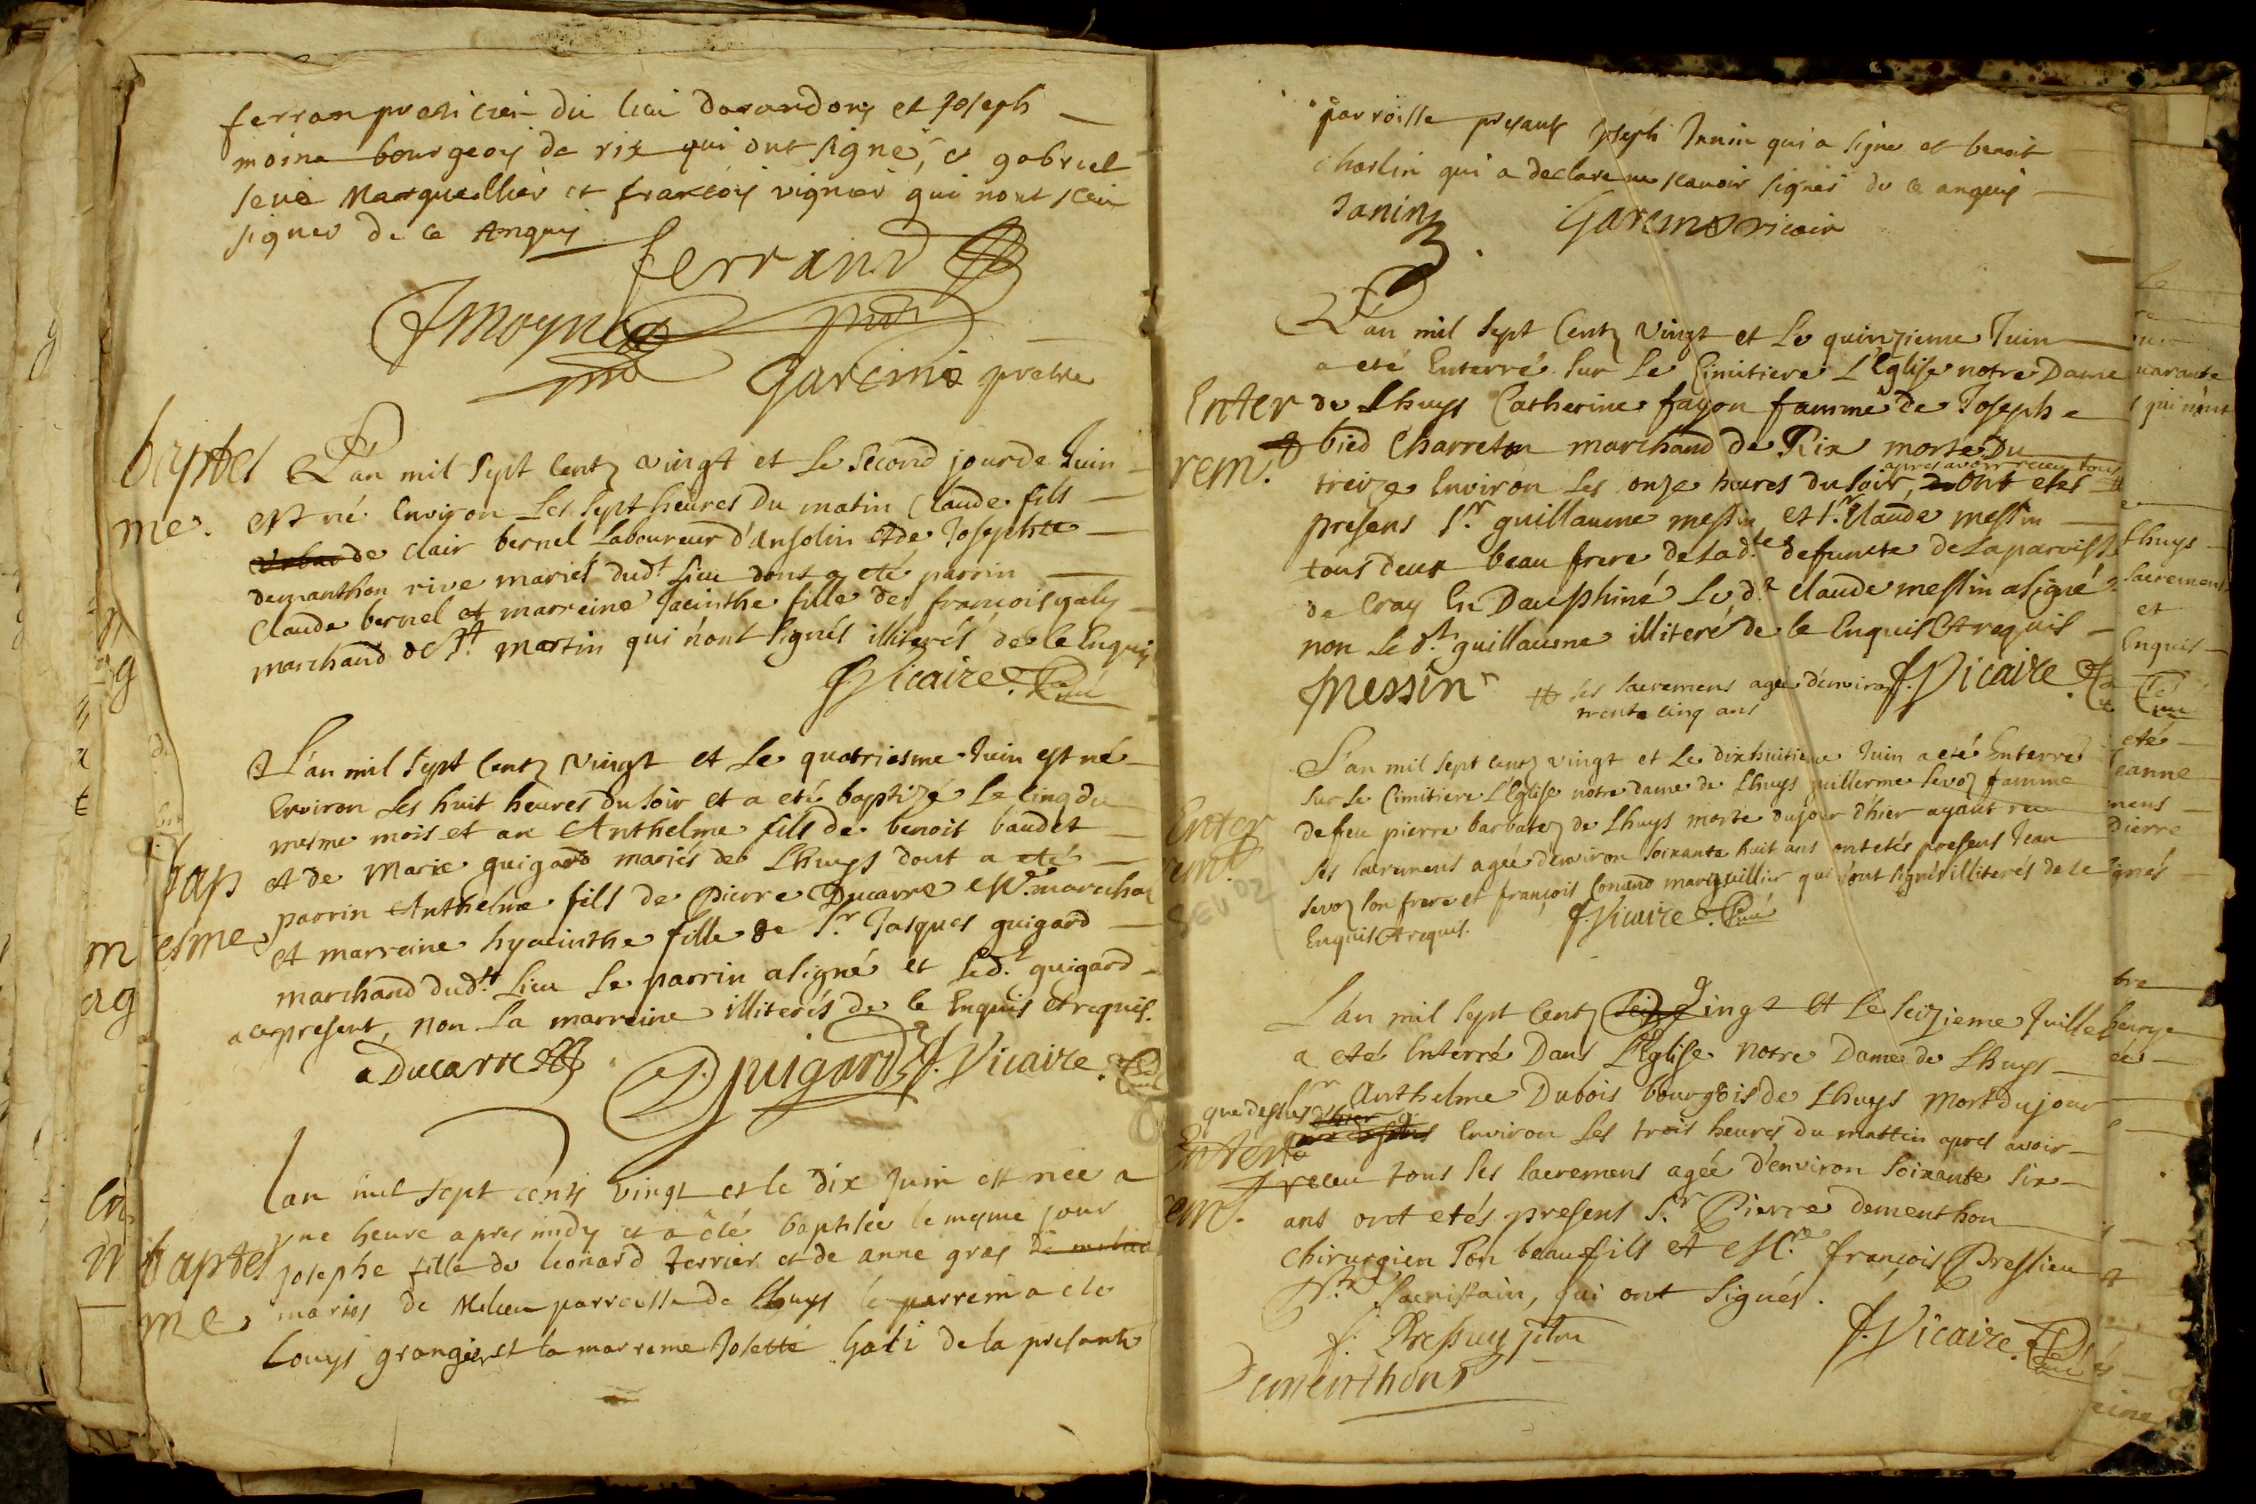 ferran praticien du lieu darandong et Joseph
moine bourgeois de rix qui ont signé, et gabriel
seve Marguellier et françois vignier qui nont sceu
signer de ce Anquis
ferrand
JMoyne
Garcin prestre
baptes
me.
L'an mil sept Centz vingt et Le Second jour de Juin
est né Environ Les Sept heures Du matin Claude fils
de clair bernel Laboureur d'ansolin et de Josephte
demanthon rive mariés dudt Lieu dont a eté parrin
Claude bernel et marreine Jacinthe fille de françois galy
marchand de St martin qui n'ont signés illiterés de ce Enquis
J. Vicaire. Curé
L'an mil Sept Centz vingt et Le quatriesme Juin est né
Environ Les huit heures Du Soir et a eté baptizé Le cinq du
mesme mois et an Anthelme fils de benoit baudet
et de Marie guigard mariés de Lhuys dont a eté
bap
tesme
parrin Anthelme fils de Pierre Ducarre Mre marechal
et marreine hyacinthe fille de Sr Jasques guigard
marchand dudt Lieu Le parrin a signé et Led.t guigard
a ce present, non La marreine illiterés de ce Enquis et requis.
a Ducarre
Guigard J. Vicaire. Curé
Lan mil sept cents vingt et le dix Juin est née a
une heure apres midy et a été baptisée le mesme jour
baptes
me
Josephe fille de leonard terrier et de anne gras
mariés de Milieu parroisse de Lhuys le parrein a eté
Louys grangier et la marreine Josette Gali de la presente
parroisse presants Joseph Janin qui a signé et benoit
Charlin qui a declare ne scavoir signer de ce anquis
Janin Garcin vicair
L'an mil Sept Centz vingt et Le quinzieme Juin
a eté Enterré Sur Le Cimitiere L'Eglise notre Dame
Enter
rem.t
de Lhuys Catherine fayon famme de Joseph
bied Charreton marchand de Rix morte Du
apres avoir receu tous
treize Environ Les onze heures du Soir, ont etés
presens Sr guillaume messin et Sr Claude messin
tous deux beau frere de Lad.te defuncte de La paroisse
de Cray En Dauphiné Led.t Claude messin a signé
non Led.t guillaume illiteré de ce Enquis et requis
Messin
Les sacremens ageé d'environ
trente cinq ans
J. Vicaire. Curé
L'an mil Sept Centz vingt et Le dixhuitieme Juin a eté Enterré
Sur Le Cimitiere L'Eglise notre dame de Lhuys guillerme Sevoz famme
Enter
em.t
SEVOZ
de feu pierre barbatez de Lhuys morte du jour d'hier ayant reu
Ses sacremens agée d'environ soixante huit ans ont etés presens Jean
Sevoz Son frere et françois Conand marguillier qui n'ont signés illiterés de ce
Enquis et requis. J. Vicaire. Curé
L'an mil Sept Centz vingt et Le Seizieme Juillet
a eté Enterré Dans L'Eglise Notre Dame de Lhuys
Sr Anthelme Dubois bourgois de Lhuys Mort du jour
que dessus
Enter
em.t
Environ Les trois heures du mattin apres avoir
receu tous Ses sacremens ageé d'environ soixante six
ans ont etés presens Sr Pierre dementhon
chirurgien Son beau fils et Mre françois Pressieu
Sacristain, qui ont signés.
J. Vicaire. Curé
Dementhon